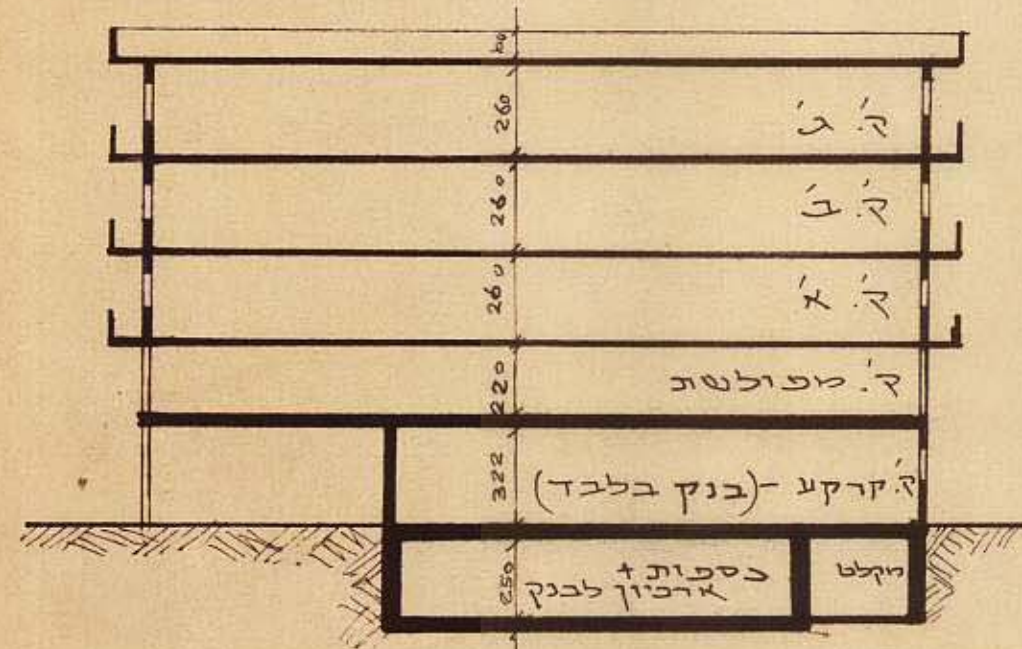 260
ק'. ג'
260
ק'. ב'
260
ק'. א'
220
ק'. מפולשת
322
ק'. קרקע - (בנק בלבד)
250
כספות +
ארכיון לבנק
מקלט